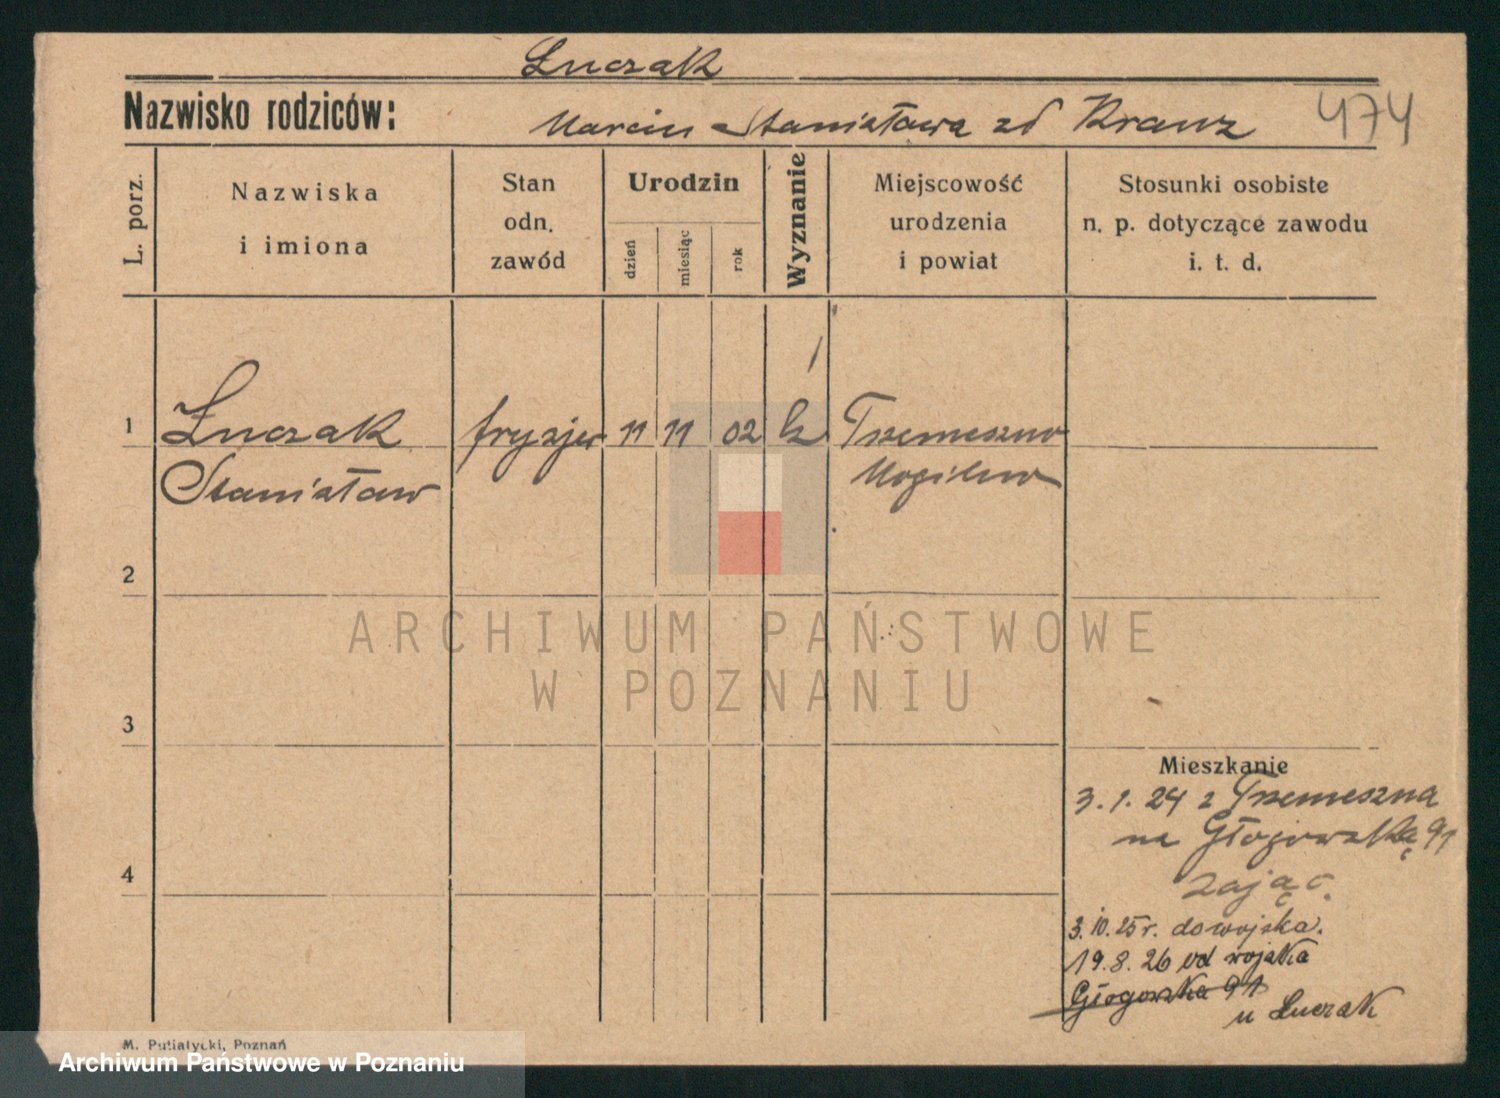 Łuczak
Nazwisko rodziców: Marcin Stanisława zd Kranz
474
L. porz.
Nazwiska
i imiona
Stan
odn.
zawód
Urodzin
dzień
miesiąc
rok
Wyznanie
Miejscowość
urodzenia
i powiat
Stosunki osobiste
n. p. dotyczące zawodu
i. t. d.
1 Łuczak fryzjer 11 11 02 k Trzemeszno
Stanisław Mogilno
2
3
4
Mieszkanie
3.1.24 z Trzemeszna
na Głogowską 91
Zając.
3.10.25r. do wojska.
19.8.26 od wojska
Głogowska 91
u Łuczak
M. Putiatycki, Poznań
ARCHIWUM PAŃSTWOWE
W POZNANIU
Archiwum Państwowe w Poznaniu